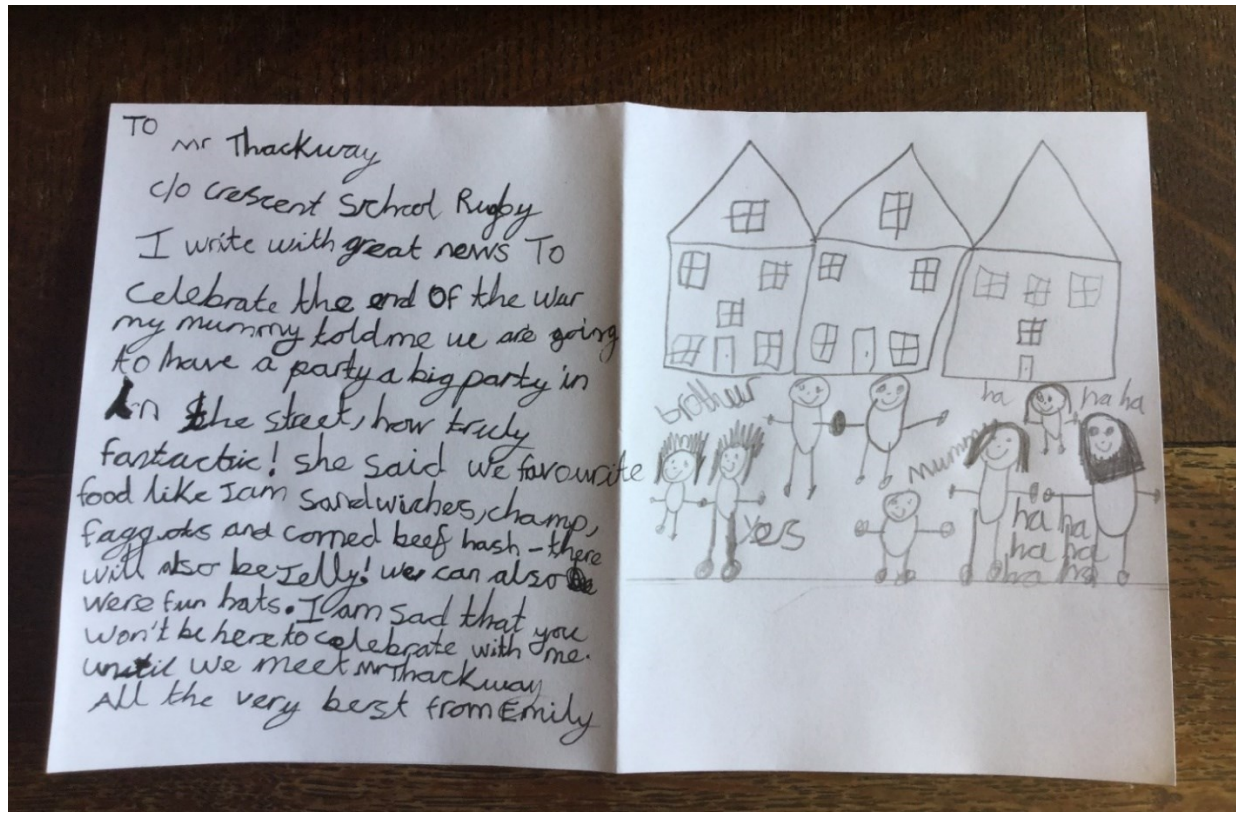 TO
Mr Thackway
c/o crescent Srchool Rugby
I write with great news To
celebrate the end Of the war
my mummy told me we are going
to have a party a big party in
In the street, how truly
fantactic! she said we favourite
food like Jam sandwiches, champ,
faggots and corned beef hash - there
will also be Jelly! we can also be
were fun hats. I am sad that you
won't be here to celebrate with me.
until we meet Mr Thackway
All the very berst from Emily
brother
yes
ha
ha ha
mummy
ha ha
ha ha
ha ha